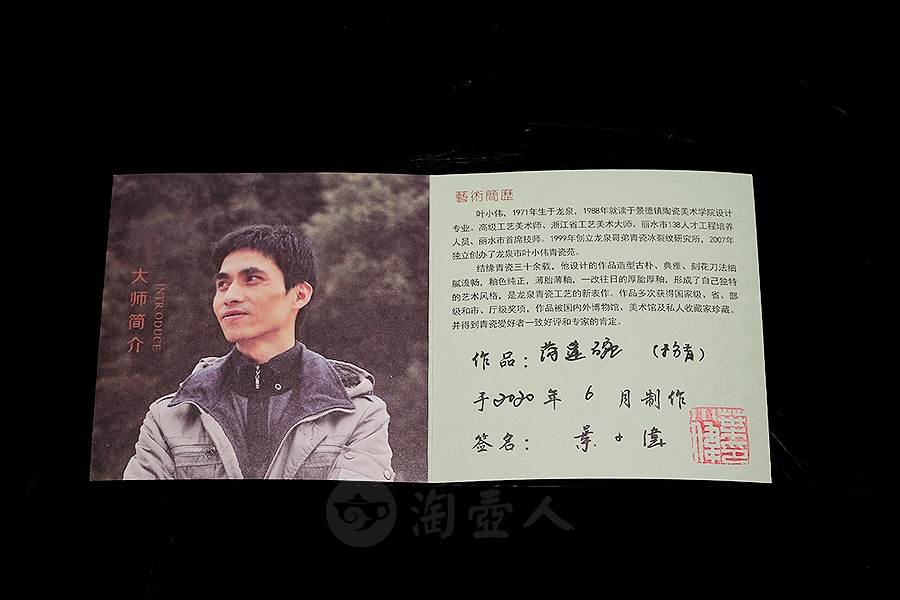 大师简介
INTRODUCE
藝術簡歷
叶小伟，1971年生于龙泉，1988年就读于景德镇陶瓷美术学院设计
专业。高级工艺美术师、浙江省工艺美术大师、丽水市138人才工程培养
人员、丽水市首席技师。1999年创立龙泉哥弟青瓷冰裂纹研究所，2007年
独立创办了龙泉市叶小伟青瓷苑。
结缘青瓷三十余载，他设计的作品造型古朴、典雅、刻花刀法细
腻流畅，釉色纯正，薄胎薄釉，一改往日的厚胎厚釉，形成了自己独特
的艺术风格，是龙泉青瓷工艺的新表作。作品多次获得国家级、省、部
级和市、厅级奖项，作品被国内外博物馆、美术馆及私人收藏家珍藏。
并得到青瓷爱好者一致好评和专家的肯定。
作品：荷莲碗
于2020年 6 月制作
签名：葉小偉
淘壶人